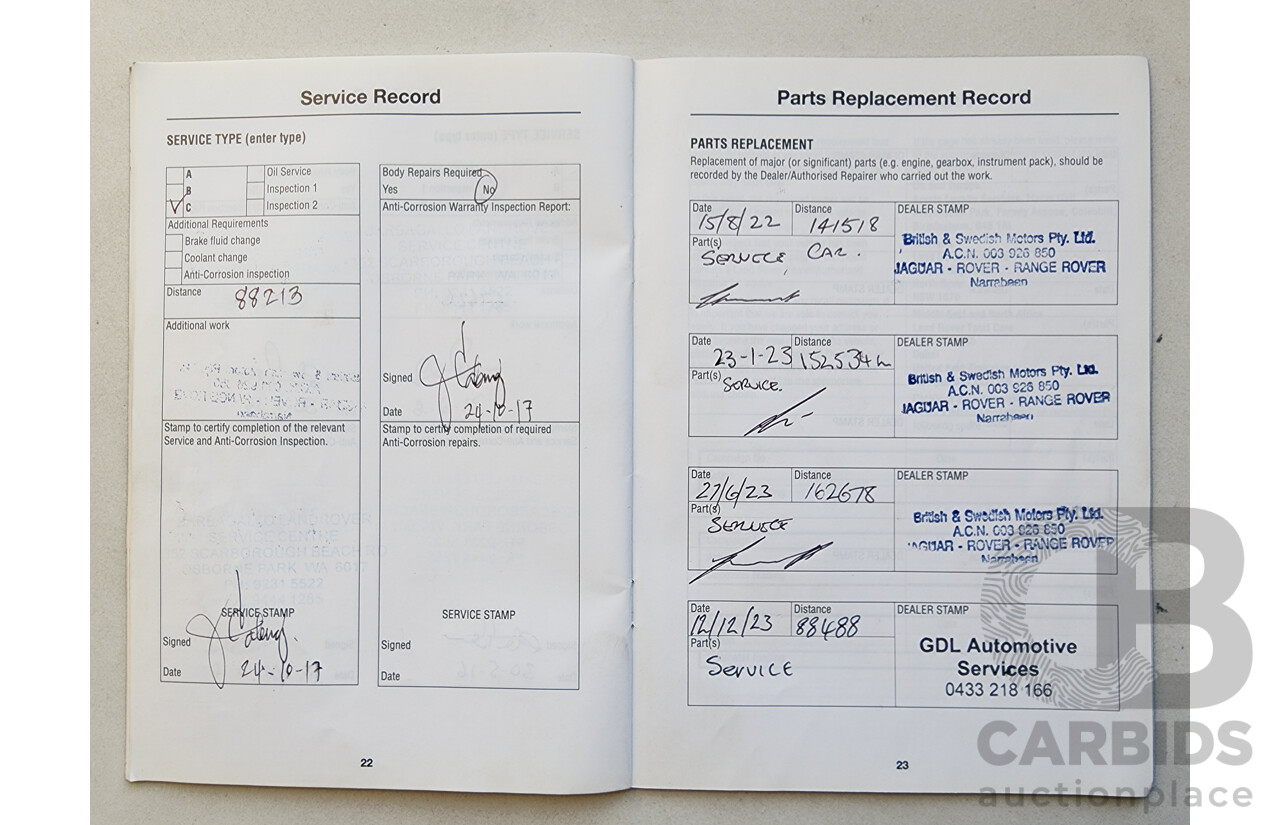 Service Record
SERVICE TYPE (enter type)
A
B
C
Oil Service
Inspection 1
Inspection 2
Additional Requirements
Brake fluid change
Coolant change
Anti-Corrosion inspection
Distance
88213
Additional work
Stamp to certify completion of the relevant
Service and Anti-Corrosion Inspection.
SERVICE STAMP
Signed
Date 24-10-17
Body Repairs Required
Yes No
Anti-Corrosion Warranty Inspection Report:
Signed
Date 24-10-17
Stamp to certify completion of required
Anti-Corrosion repairs.
SERVICE STAMP
Signed
Date
22
Parts Replacement Record
PARTS REPLACEMENT
Replacement of major (or significant) parts (e.g. engine, gearbox, instrument pack), should be
recorded by the Dealer/Authorised Repairer who carried out the work.
Date Distance DEALER STAMP
15/8/22 141518
Part(s)
SERVICE CAR.
British & Swedish Motors Pty. Ltd.
A.C.N. 003 926 850
JAGUAR - ROVER - RANGE ROVER
Narrabeen
Date Distance DEALER STAMP
23-1-23 152534
Part(s)
SERVICE.
British & Swedish Motors Pty. Ltd.
A.C.N. 003 926 850
JAGUAR - ROVER - RANGE ROVER
Narrabeen
Date Distance DEALER STAMP
27/6/23 162678
Part(s)
SERVICE
British & Swedish Motors Pty. Ltd.
A.C.N. 003 926 850
JAGUAR - ROVER - RANGE ROVER
Narrabeen
Date Distance DEALER STAMP
12/12/23 88488
Part(s)
SERVICE
GDL Automotive
Services
0433 218 166
23
CARBIDS
auctionplace